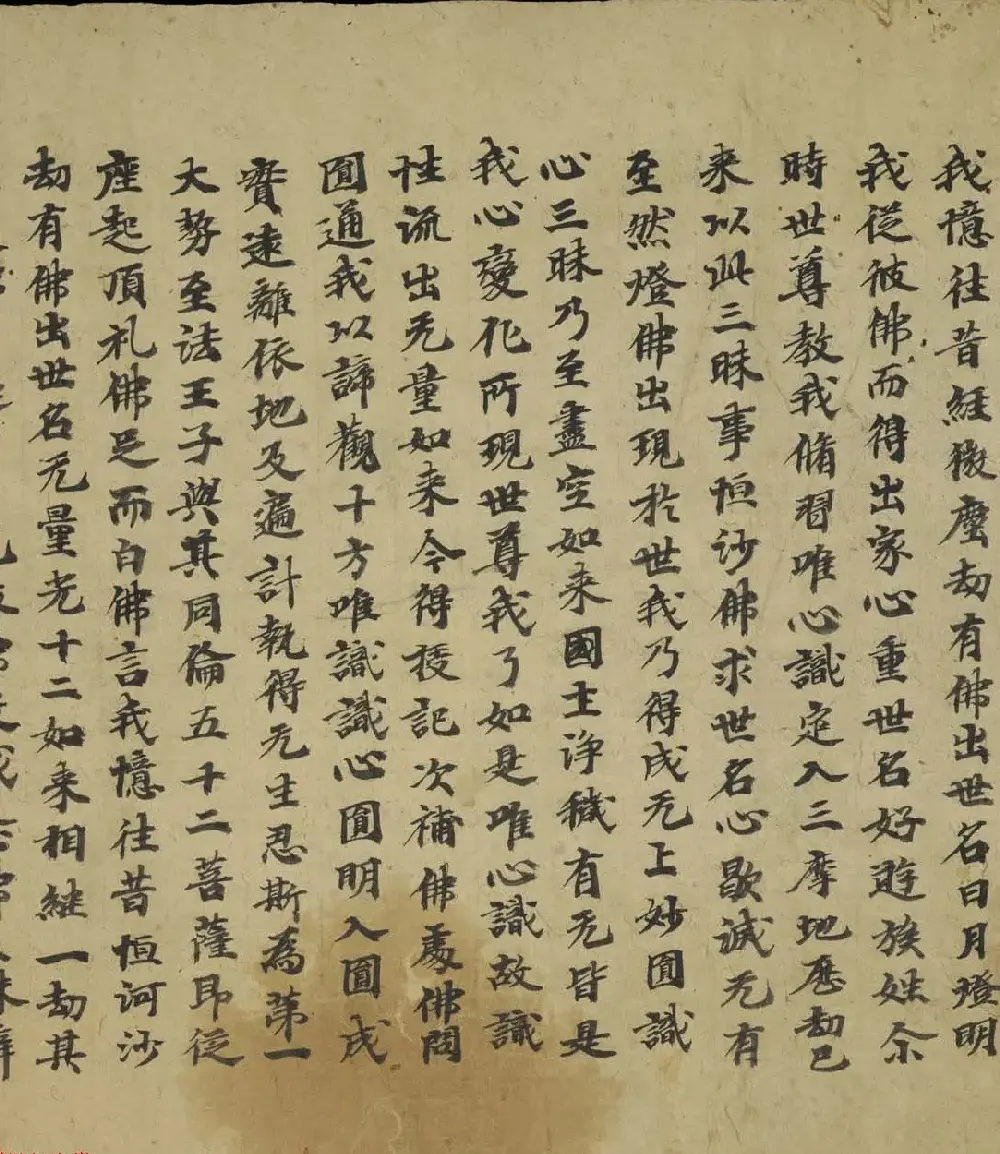 我憶往昔經微塵劫有佛出世名日月燈明
我從彼佛而得出家心重世名好遊族姓尒
時世尊教我脩習唯心識定入三摩地歷劫已
来以此三昧事恒沙佛求世名心歇滅无有
至然燈佛出現於世我乃得成无上妙圓識
心三昧乃至盡空如来國土浄穢有无皆是
我心變化所現世尊我了如是唯心識故識
性流出无量如来今得授記次補佛處佛問
圓通我以諦觀十方唯識識心圓明入圓成
實遠離依地及遍計執得无生忍斯為苐一
大勢至法王子與其同倫五十二菩薩即從
座起頂礼佛足而白佛言我憶往昔恒河沙
劫有佛出世名无量光十二如来相継一劫其